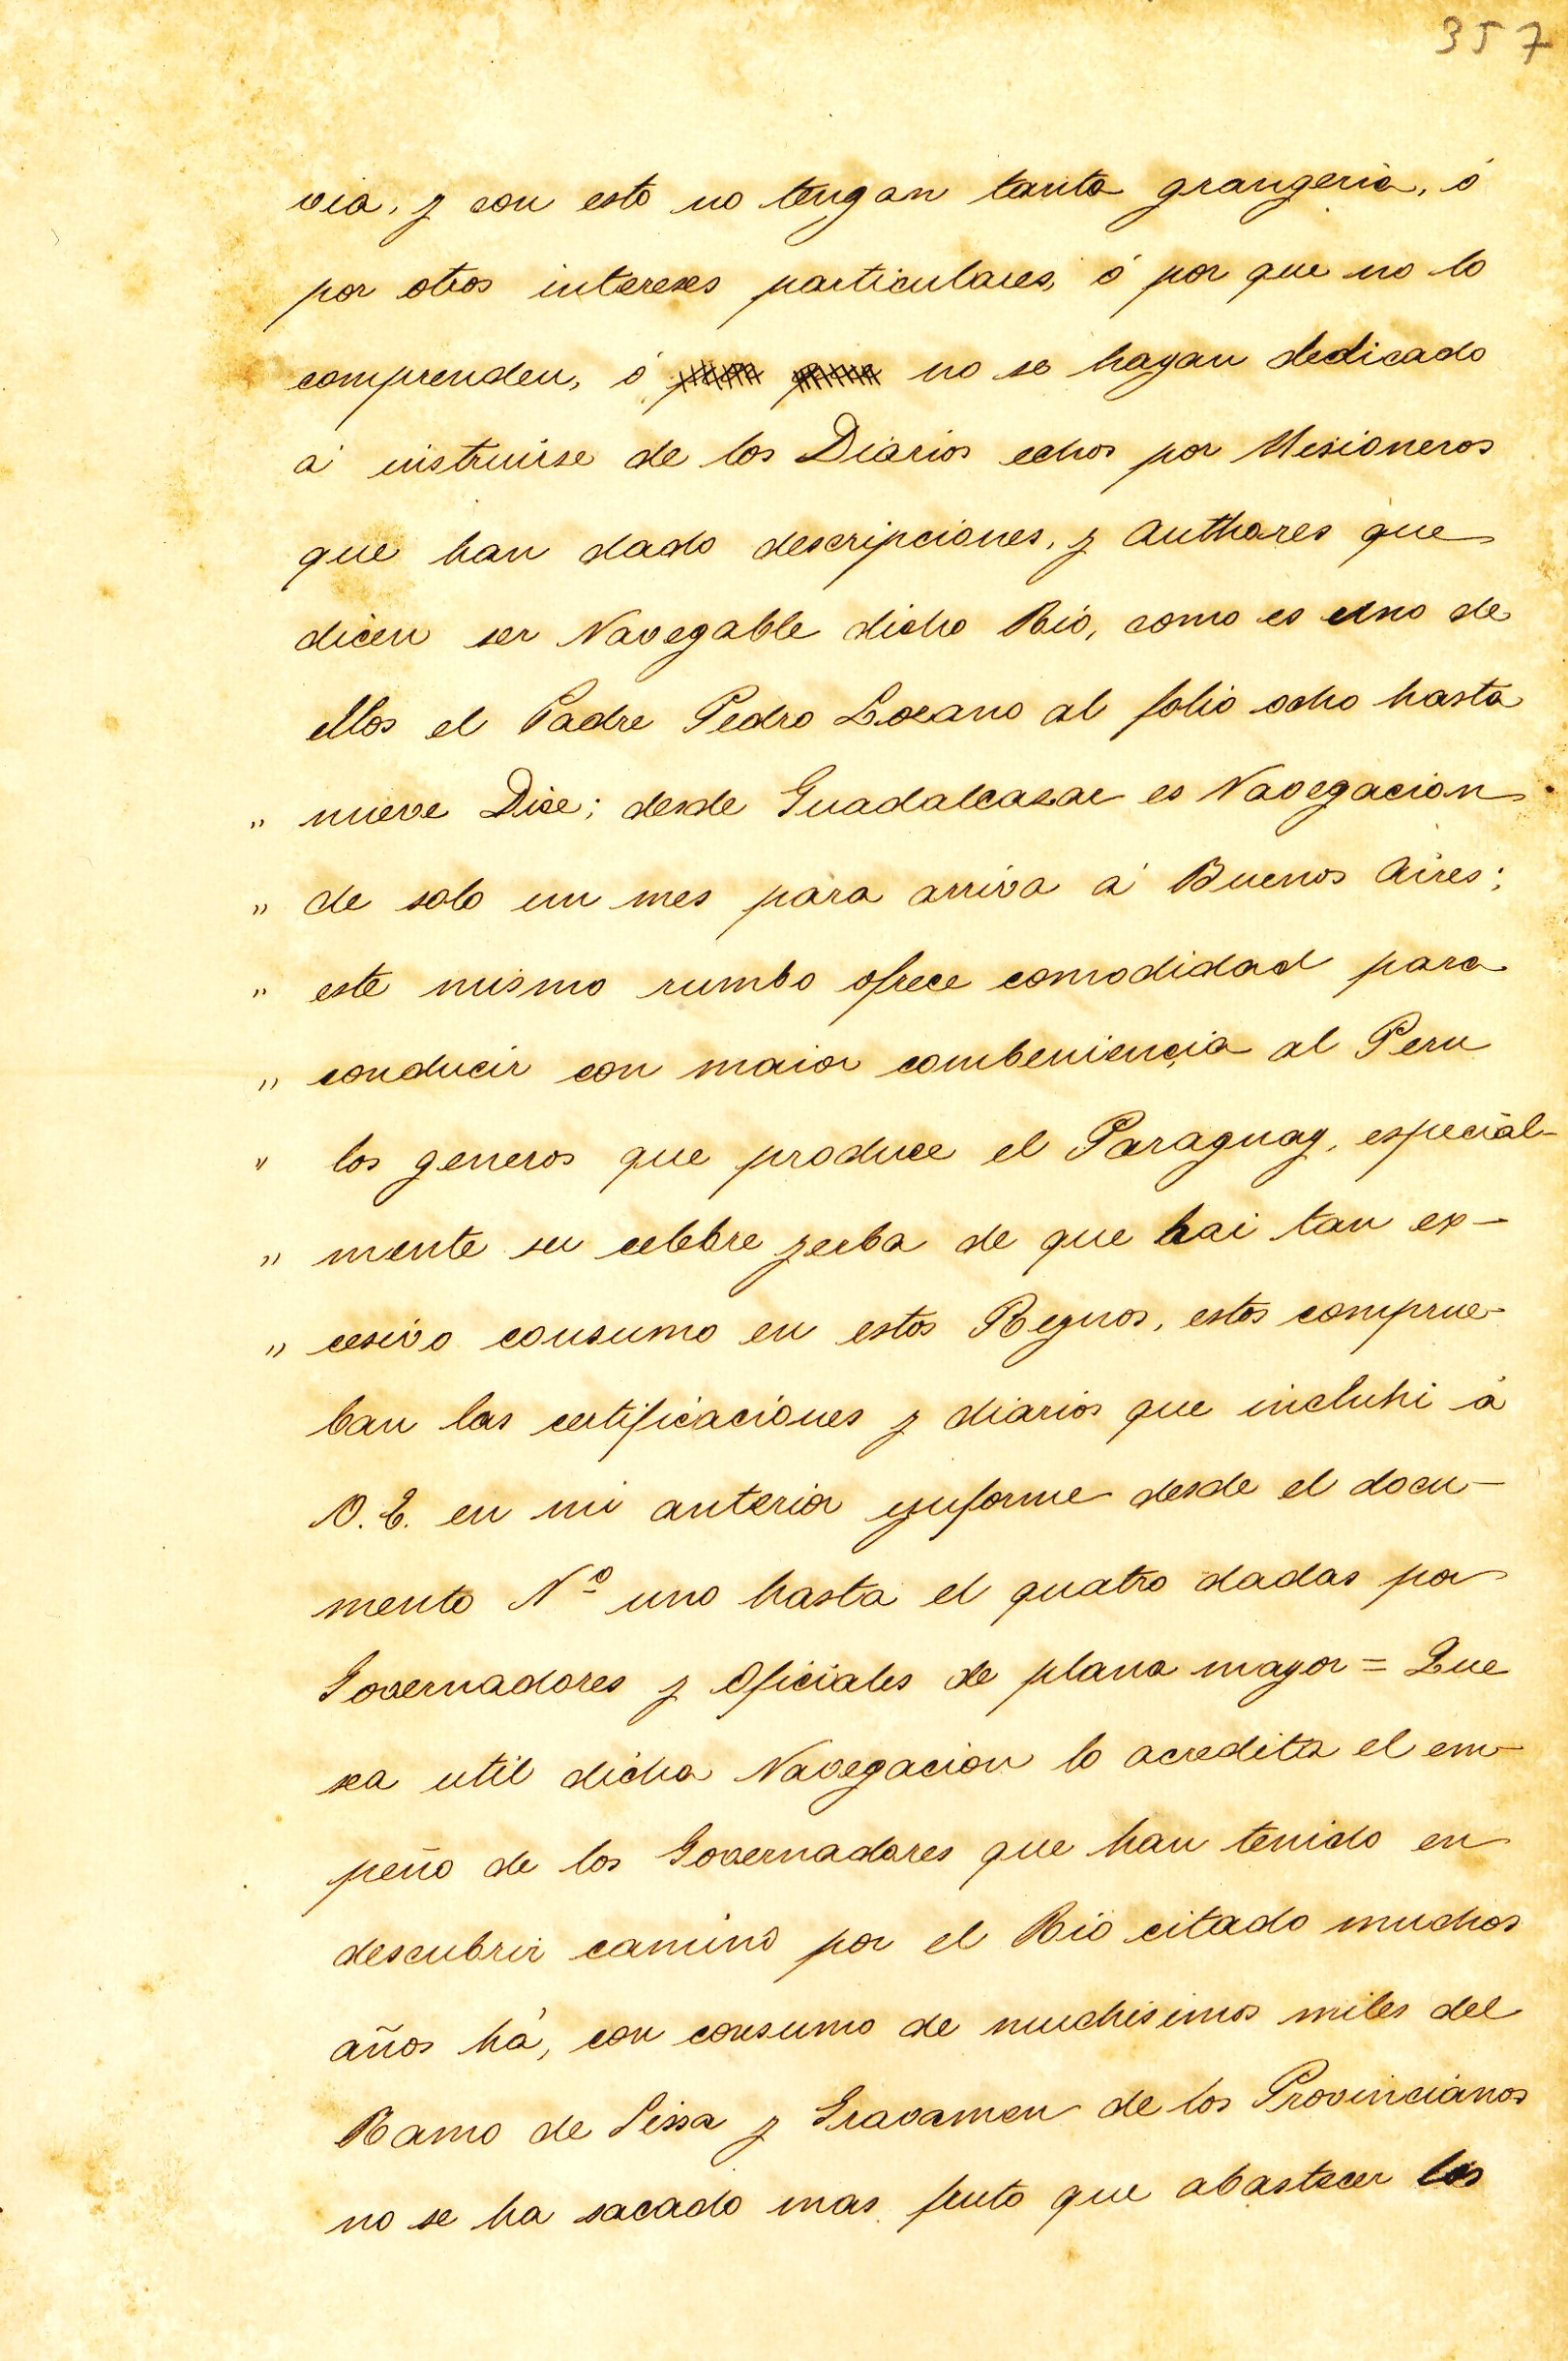 357
via, y con esto no tengan tanta grangeria, ó
por otros intereses particulares, ó por que no lo
comprenden, ó no se hayan dedicado
á instruirse de los Diarios echos por Misioneros
que han dado descripciones, y Authores que
dicen ser Navegable dicho Rio, como es uno de
ellos el Padre Pedro Lozano al folio ocho hasta
" nueve Dice; desde Guadalcazar es Navegacion
" de solo un mes para arriva á Buenos Aires;
" este mismo rumbo ofrece comodidad para
" conducir con maior combeniencia al Peru
" los generos que produce el Paraguay, especial-
" mente su celebre yerba de que hai tan ex-
" cesivo consumo en estos Reynos, estos comprue-
ban las certificaciones y diarios que incluhi á
V. E. en mi anterior ynforme desde el docu-
mento Nº uno hasta el quatro dadas por
Governadores y Oficiales de plana mayor = Que
sea util dicha Navegacion lo acredita el em-
peño de los Governadores que han tenido en
descubrir camino por el Rio citado muchos
años há, con consumo de muchisimos miles del
Ramo de Sissa y Gravamen de los Provincianos
no se ha sacado mas fruto que abastecer los